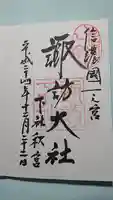 信濃國一之宮
諏訪大社
下社秋宮
平成二十四年十二月二十二日